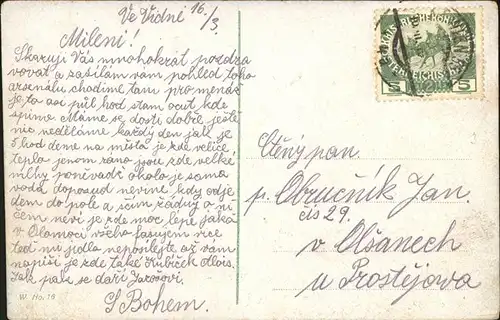 Ve Vídni 16/3.
Milení!
Skazuji Vás mnohokrát pozdra
vovat a zasílám vám pohled toho
arsenálu chodíme tam pro menáž
je to asi půl hod stam ocut kde
spíme Máme se dosti dobře ještě
nic neděláme každý den jall je
5 hod deme na místa je zde velice
tepla jenom rano jsou zde velké
mlhy poněvadč okolo je sama
voda doposud nevíme kdy odje
dem do pole a sčím žádný a ni
čem neví je zde moc lépe jaká
v Olomoci všeho fasujem více
teď mu jídla neposílejte až vám
napíši je zde také Kubíček Alois.
Jak pak se daří Jarošovi.
S Bohem.
Ctěný pan
p. Obručník Jan.
čís 29.
v Olšanech
u Prostějova
5 5
W. Ho. 19